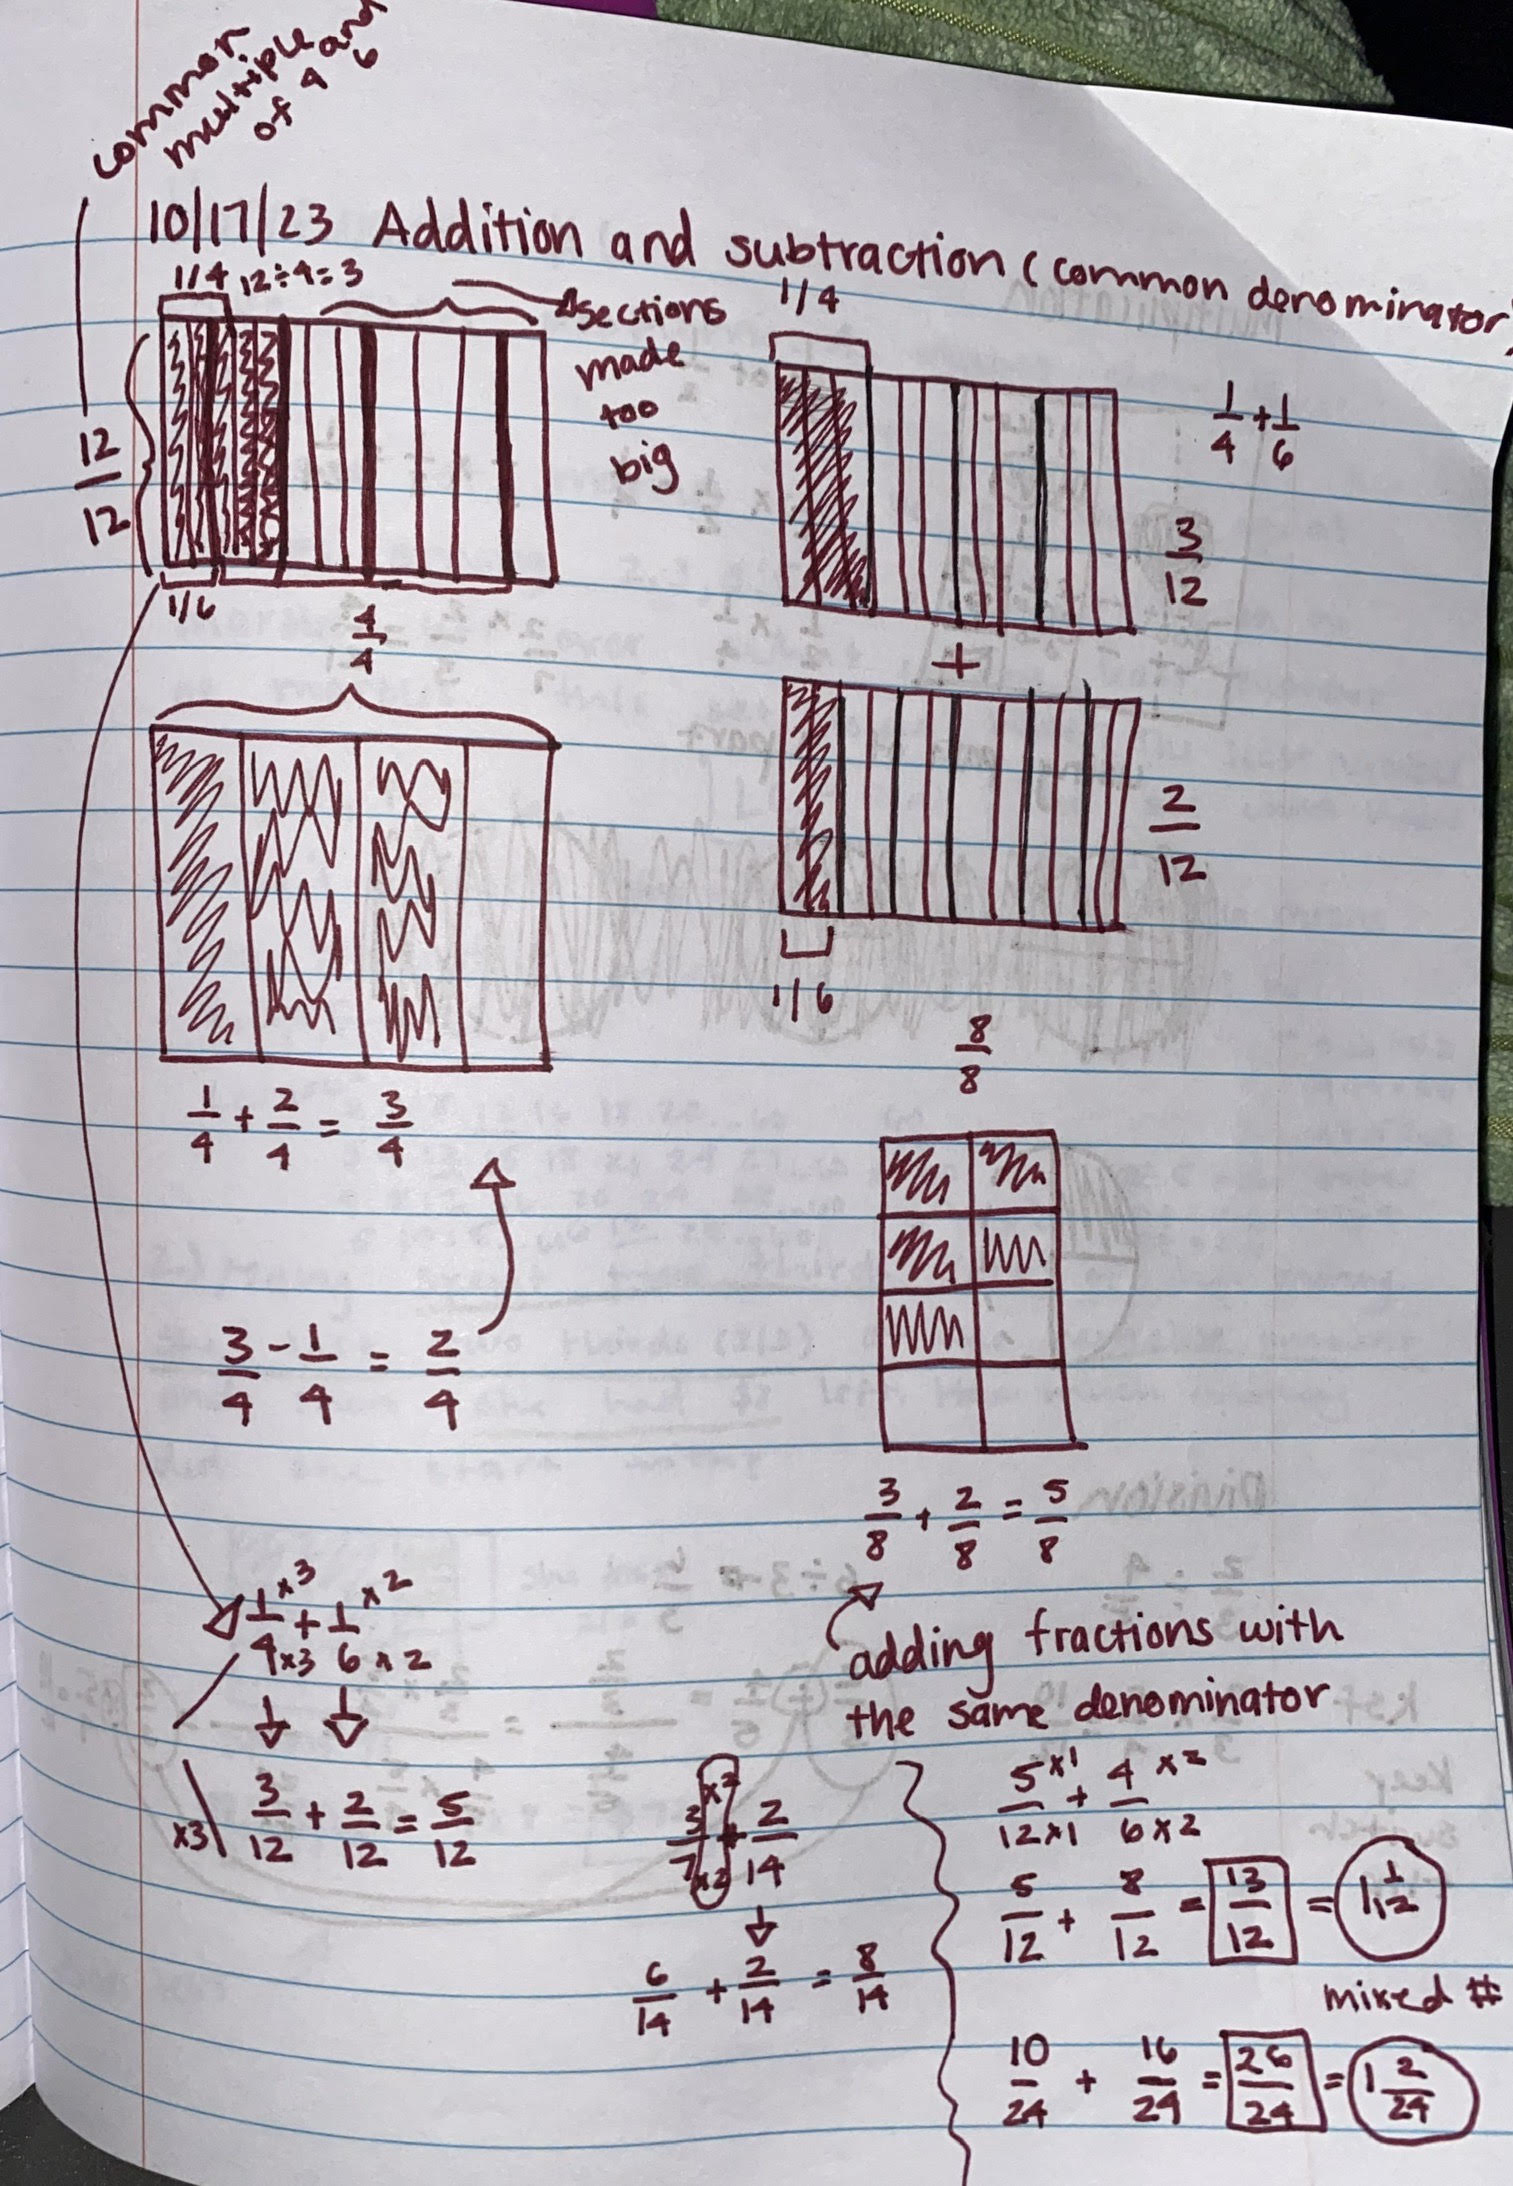 common
multiple and
of 4 6
10/17/23 Addition and subtraction (common denominator)
1/4 12÷4=3
sections
made
too
big
12/12
1/6
1/4
1/4 + 1/6
3/12
+
2/12
1/6
4/4
1/4 + 2/4 = 3/4
3/4 - 1/4 = 2/4
8/8
3/8 + 2/8 = 5/8
adding fractions with
the same denominator
1/4 x3/x3 + 1/6 x2/x2
x3
3/12 + 2/12 = 5/12
3/7 x2/x2 + 2/14
6/14 + 2/14 = 8/14
5/12 x1/x1 + 4/6 x2/x2
5/12 + 8/12 = 13/12 = 1 1/12
mixed #
10/24 + 16/24 = 26/24 = 1 2/24